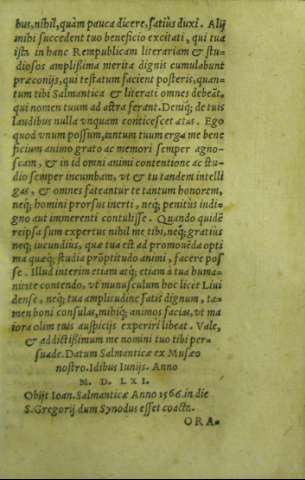 bus, nihil, quàm pauca dicere, satius duxi. Alij
mihi succedent tuo beneficio excitati, qui tua
ista in hanc Rempublicam literariam & stu-
diosos amplißima merita dignis cumulabunt
præconijs, qui testatum facient posteris, quan-
tum tibi Salmantica & literati omnes debeāt,
qui nomen tuum ad astra ferant. Deniq; de tuis
laudibus nulla vnquam conticescet ætas. Ego
quod vnum possum, tantum tuum erga me bene
ficium animo grato ac memori semper agno-
scam, & in id omni animi contentione ac stu-
dio semper incumbam, vt & tu tandem intelli
gas, & omnes fateantur te tantum honorem,
neq; homini prorsus inerti, neq; penitùs indi-
gno aut immerenti contulisse. Quando quidē
reipsa sum expertus nihil me tibi, neq; gratius
neq; iucundius, quæ tua est ad promouēda opti
ma quæq; studia prōptitudo animi, facere pos
se. Illud interim etiam atq; etiam à tua huma-
nitate contendo, vt munusculum hoc licet Liui
dense, neq; tua amplitudine satis dignum, ta-
men boni consulas, mihiq; animos facias, vt ma
iora olim tuis auspicijs experiri libeat. Vale,
& addictißimum me nomini tuo tibi per-
suade. Datum Salmanticæ ex Musæo
nostro. Idibus Iunijs. Anno
M. D. LXI.
Obijt Ioan. Salmanticæ Anno 1566. in die
S. Gregorij dum Synodus esset coacta.
ORA-